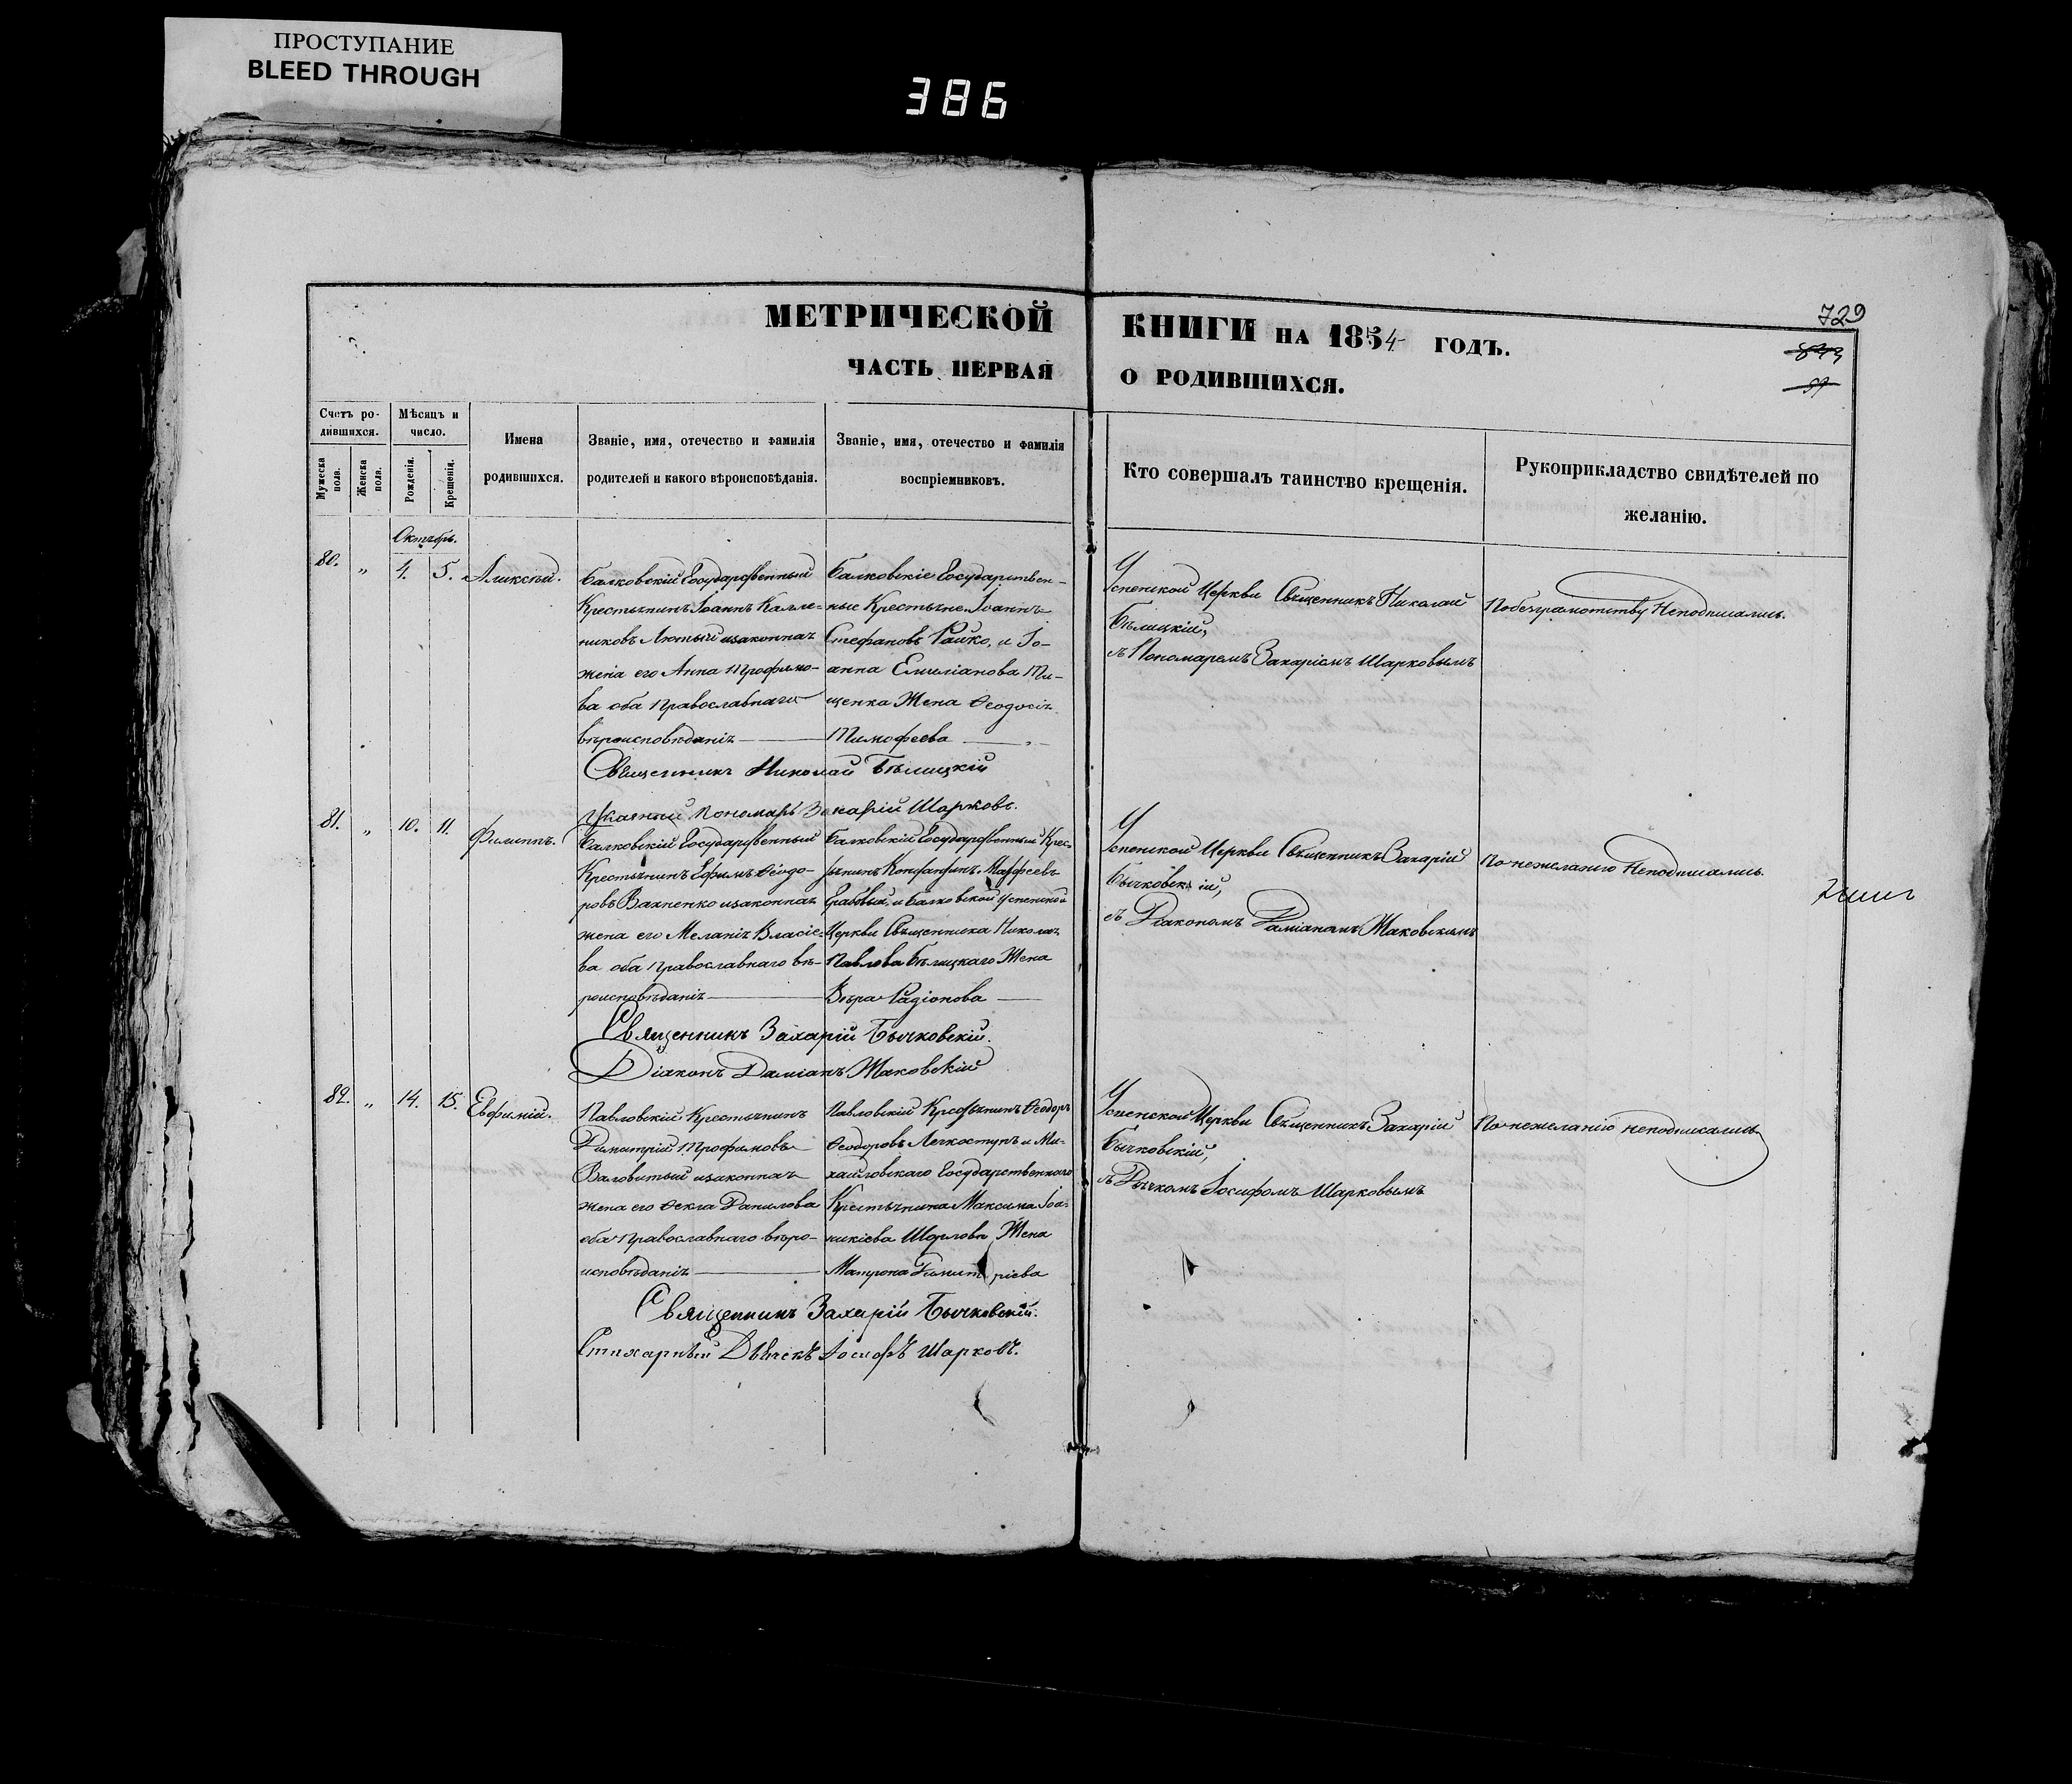 ПРОСТУПАНИЕ
BLEED THROUGH
386
МЕТРИЧЕСКОЙ КНИГИ НА 1854 ГОДЪ.
729
ЧАСТЬ ПЕРВАЯ О РОДИВШИХСЯ.
Счетъ ро-
дившихся.
Мужеска пола.
Женска пола.
Мѣсяцъ и
число.
Рожденія.
Крещенія.
Имена
родившихся.
Званіе, имя, отечество и фамилія
родителей и какого вѣроисповѣданія.
Званіе, имя, отечество и фамилія
воспріемниковъ.
Кто совершалъ таинство крещенія.
Рукоприкладство свидѣтелей по
желанію.
Октябрь.
80. „ 4. 5. Алексѣй.
Балковскій Государственный
Крестьянинъ Іоаннъ
Лютый и законная
жена его Анна Трофимо-
ва оба Православнаго
вѣроисповѣданія
Балковскіе Государствен-
ные Крестьяне Іоаннъ
Стефановъ Райко, и Іо-
анна Емиліанова Ти-
щенка Жена Ѳеодосія
Тимофеева
Успенской Церкви Священникъ Николай
Бѣлицкій,
съ Пономаремъ Захаріемъ Шарковымъ
По безграмотству Неподписались.
Священникъ Николай Бѣлицкій
Указный Пономарь Захарій Шарковъ.
81. „ 10. 11. Филиппъ.
Балковскій Государственный
Крестьянинъ Ефимъ Ѳеодо-
ровъ Вахненко и законная
жена его Меланія Власіе-
ва оба Православнаго вѣ-
роисповѣданія
Балковскій Государственный Крес-
тьянинъ Константинъ Матфеевъ
и Балковской Успенской
Церкви Священника Николая
Павлова Бѣлицкаго Жена
Вѣра Радіонова
Успенской Церкви Священникъ Захарій
Бычковскій,
съ Діакономъ Даміаномъ Жаковскимъ
По нежеланію Неподписались.
Священникъ Захарій Бычковскій.
Діаконъ Даміанъ Жаковскій
82. „ 14. 15. Евфимій.
Павловскій Крестьянинъ
Димитрій Трофимовъ
Валовитый и законная
жена его Ѳекла Данилова
оба Православнаго вѣро-
исповѣданія
Павловскій Крестьянинъ Ѳеодоръ
Ѳеодоровъ Легкоступъ и Ми-
хайловскаго Государственнаго
Крестьянина Максима Іоа-
никіева Жена
Матрона Димитріева
Успенской Церкви Священникъ Захарій
Бычковскій,
съ Дячкомъ Іосифомъ Шарковымъ
По нежеланію неподписались
Священникъ Захарій Бычковскій.
Стихарный Дьячекъ Іосифъ Шарковъ.